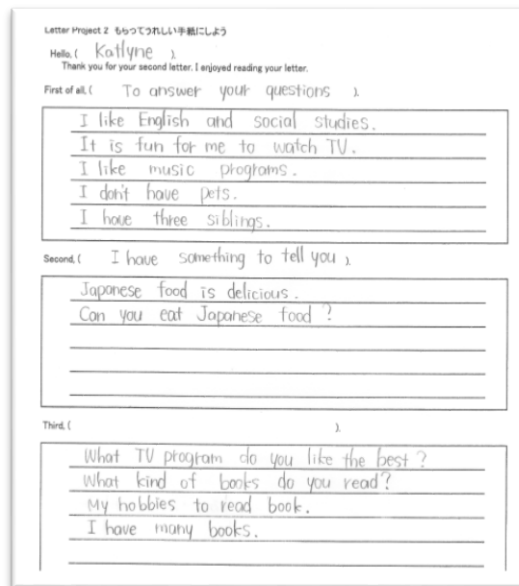 Letter Project 2 もらってうれしい手紙にしよう
Hello, ( Katlyne ).
Thank you for your second letter. I enjoyed reading your letter.
First of all, ( To answer your questions ).
I like English and social studies.
It is fun for me to watch TV.
I like music programs.
I don't have pets.
I have three siblings.
Second, ( I have something to tell you ).
Japanese food is delicious.
Can you eat Japanese food?
Third, ( ).
What TV program do you like the best?
What kind of books do you read?
My hobbies to read book.
I have many books.